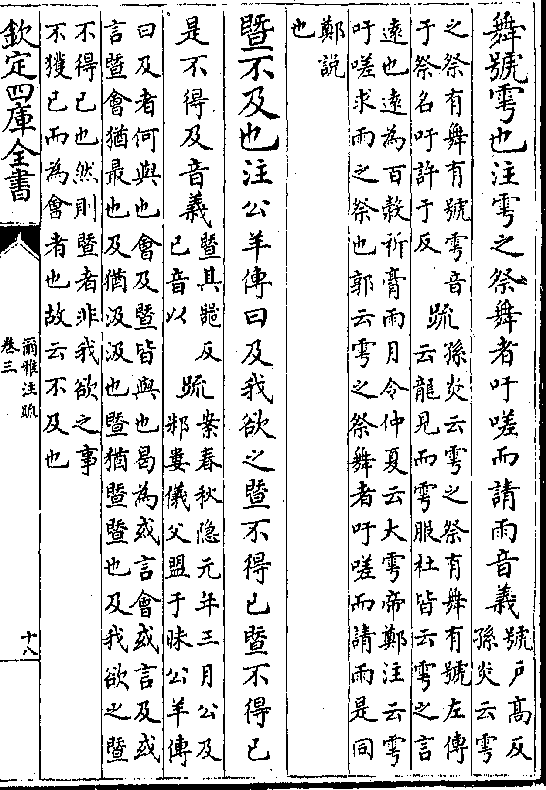 舞號雩也注雩之祭舞者吁嗟而請雨音義號戶高反
孫炎云雩
之祭有舞有號雩音
于祭名吁許于反
疏孫炎云雩之祭有舞有號左傳
云龍見而雩服杜皆云雩之言
遠也遠為百穀祈膏雨月令仲夏云大雩帝鄭注云雩
吁嗟求雨之祭也郭云雩之祭舞者吁嗟而請雨是同
鄭說
也
暨不及也注公羊傳曰及我欲之暨不得已暨不得已
是不得及音義暨其反
已音以
疏案春秋隐元年三月公及
邾婁儀父盟于昧公羊傳
曰及者何與也會及暨皆與也曷為或言會或言及或
言暨會猶最也及猶汲汲也暨猶暨暨也及我欲之暨
不得已也然則暨者非我欲之事
不獲已而為會者也故云不及也
欽定四庫全書
爾雅注疏
卷三
十八